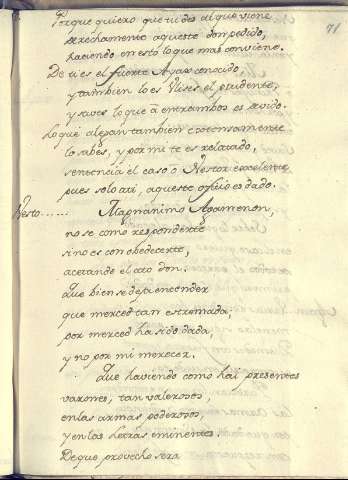 71
Porque quiero que tu des al que viene
derechamente aqueste don pedido,
haciendo en esto lo que mas conviene.
De ti es el fuerte Ayax conocido
y tambien lo es Ulises el prudente,
y saves lo que á entrambos es devido.
Lo que alegan tambien copiosamente
lo sabes, y por mi te es relatado,
sentencia el caso o Nestor excelente
pues solo a ti, aqueste oficio es dado.
Nesto...... Magnanimo Agamenon,
no se como responderte
sino es con obedecerte,
acetando el alto don.
Que bien se deja entender
que merced tan estremada,
por merced ha sido dada,
y no por mi merecer.
Que haviendo como hai presentes
varones, tan valerosos,
en las armas poderosos,
y en las letras eminentes.
De que provecho sera